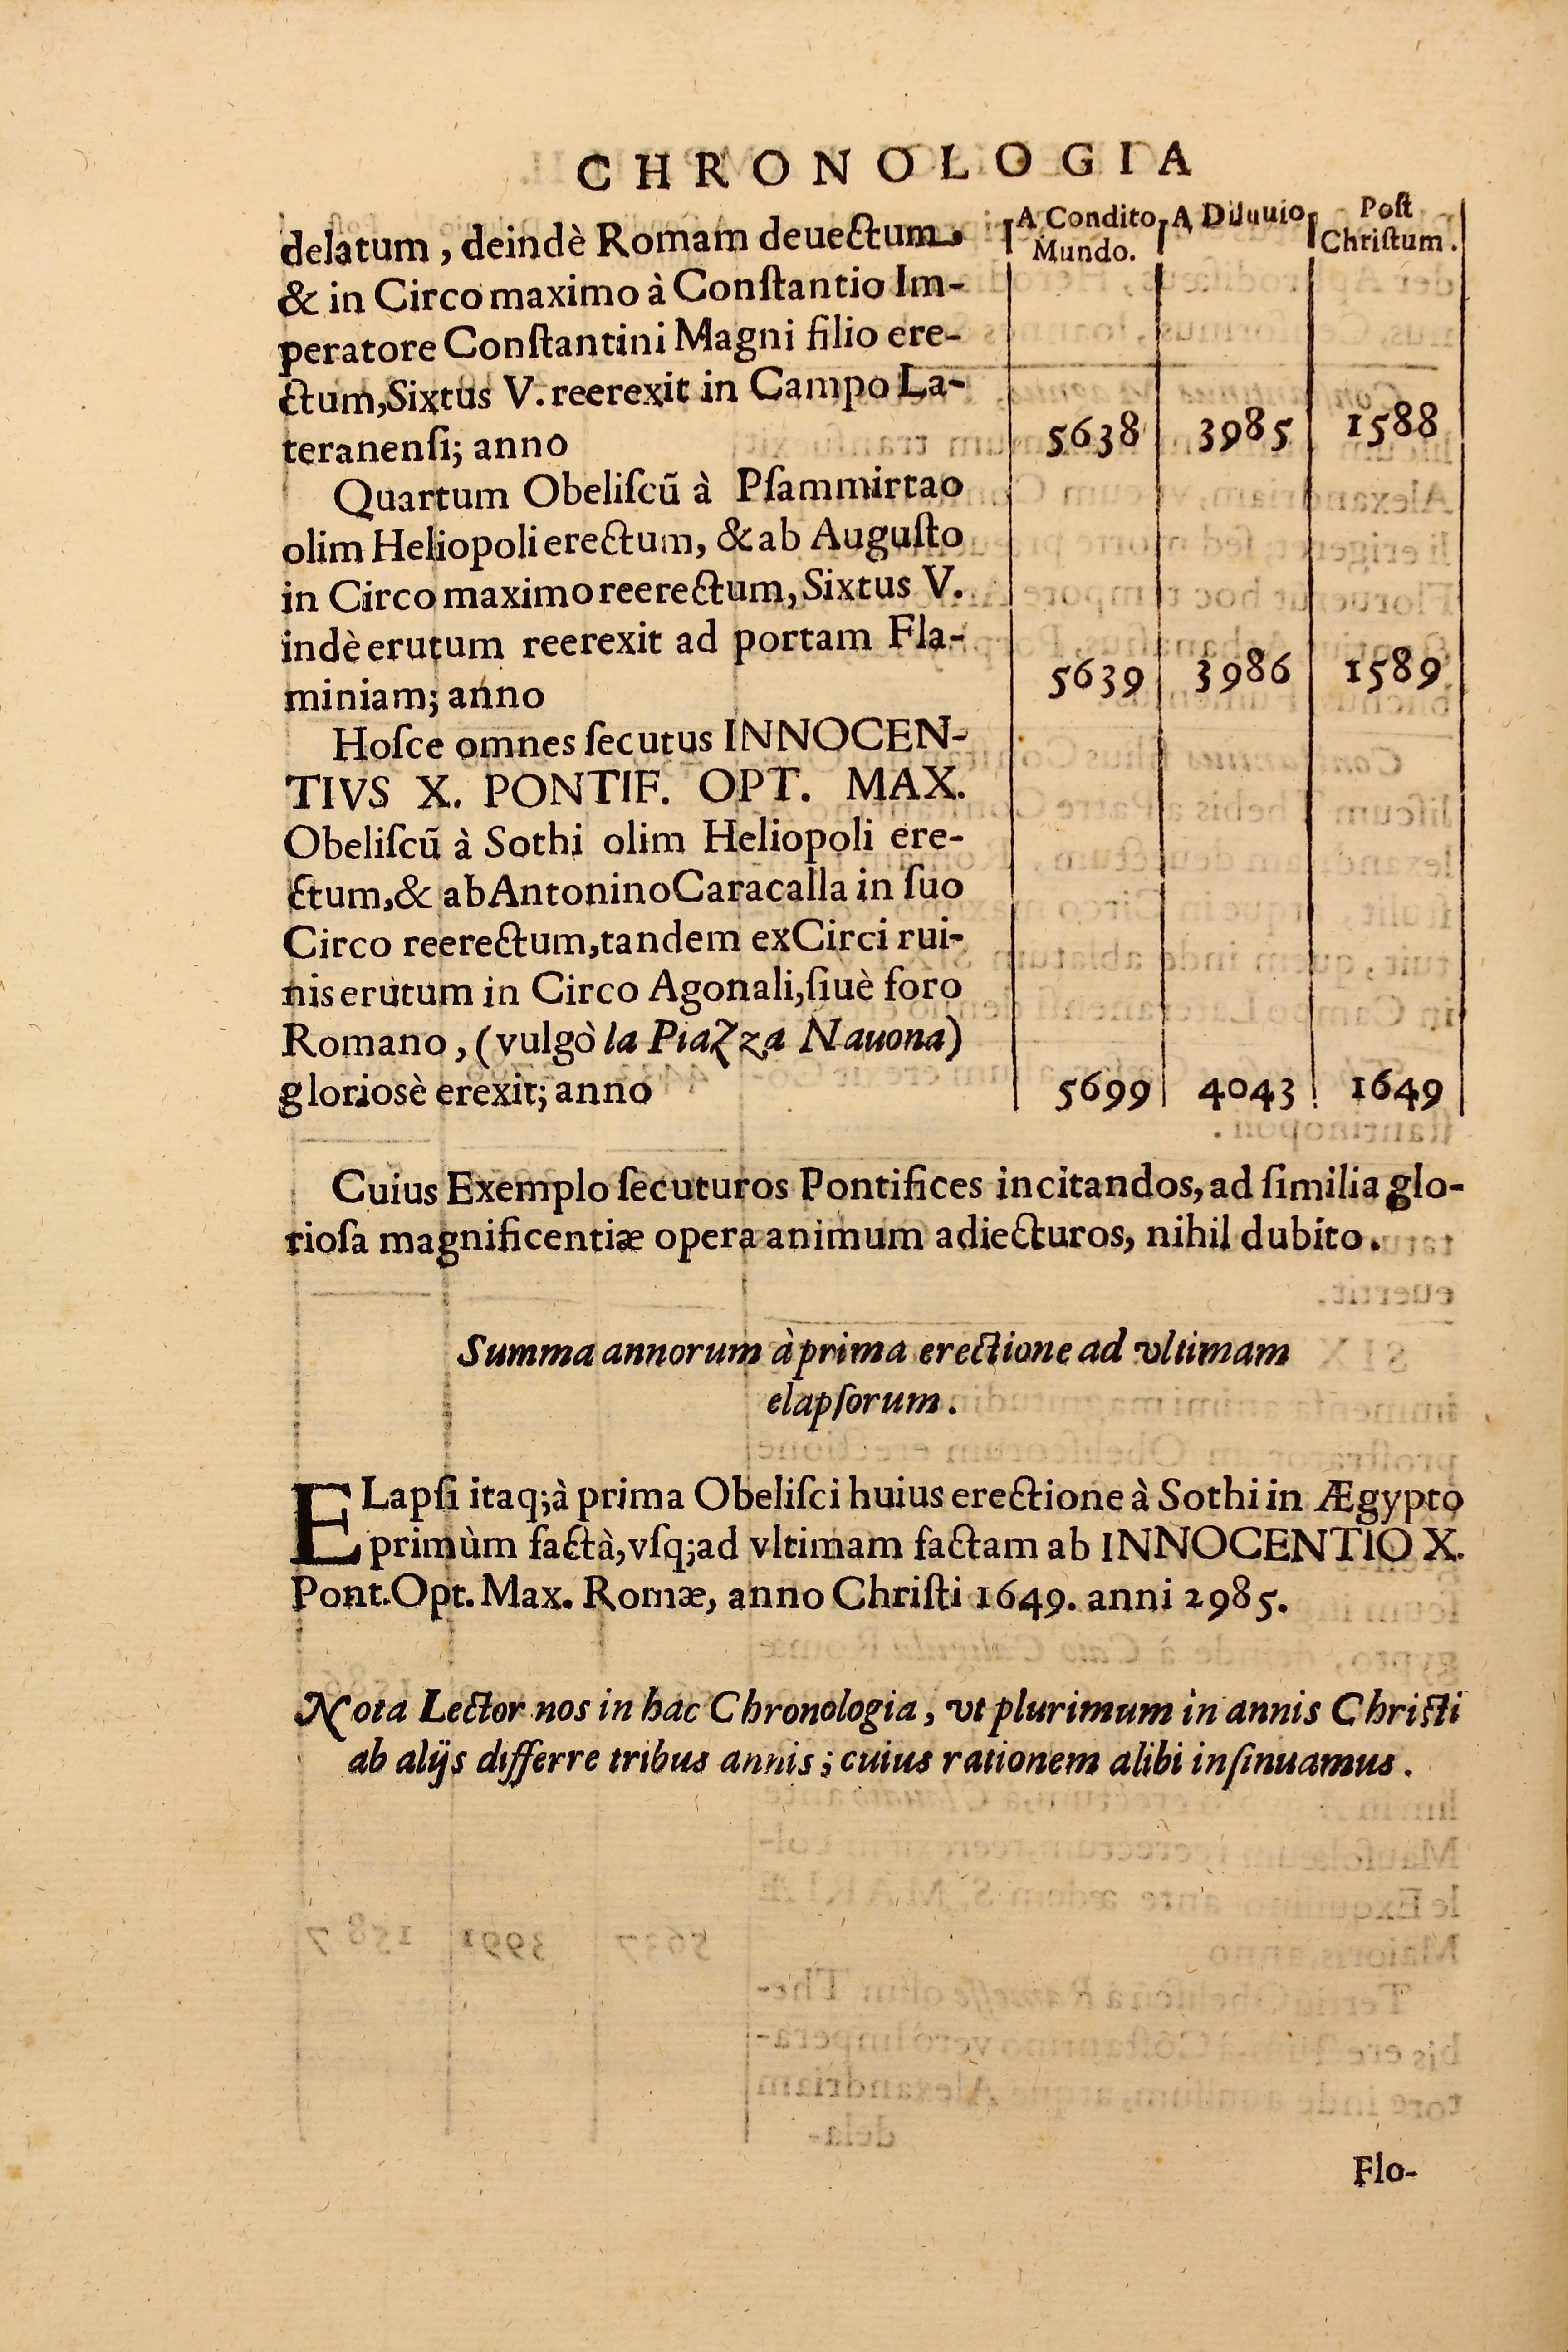 CHRONOLOGIA
A Condito Mundo. A Diluuio Post Christum.
delatum, deindè Romam deuectum,
& in Circo maximo à Conſtantio Im-
peratore Conſtantini Magni filio ere-
ctum, Sixtus V. reerexit in Campo La-
teranenſi; anno 5638 3985 1588
Quartum Obeliſcũ à Pſammirtao
olim Heliopoli erectum, & ab Auguſto
in Circo maximo reerectum, Sixtus V.
indè erutum reerexit ad portam Fla-
miniam; anno 5639 3986 1589
Hoſce omnes ſecutus INNOCEN-
TIVS X. PONTIF. OPT. MAX.
Obeliſcũ à Sothi olim Heliopoli ere-
ctum, & ab Antonino Caracalla in ſuo
Circo reerectum, tandem ex Circi rui-
nis erutum in Circo Agonali, ſiuè foro
Romano, (vulgò la Piazza Nauona)
gloriosè erexit; anno 5699 4043 1649
Cuius Exemplo ſecuturos Pontifices incitandos, ad ſimilia glo-
rioſa magnificentiæ opera animum adiecturos, nihil dubito.
Summa annorum à prima erectione ad vltimam
elapſorum.
ELapſi itaq; à prima Obeliſci huius erectione à Sothi in Ægypto
primùm factà, vſq; ad vltimam factam ab INNOCENTIO X.
Pont. Opt. Max. Romæ, anno Chriſti 1649. anni 2985.
Nota Lector nos in hac Chronologia, vt plurimum in annis Chriſti
ab alijs differre tribus annis; cuius rationem alibi inſinuamus.
Flo-